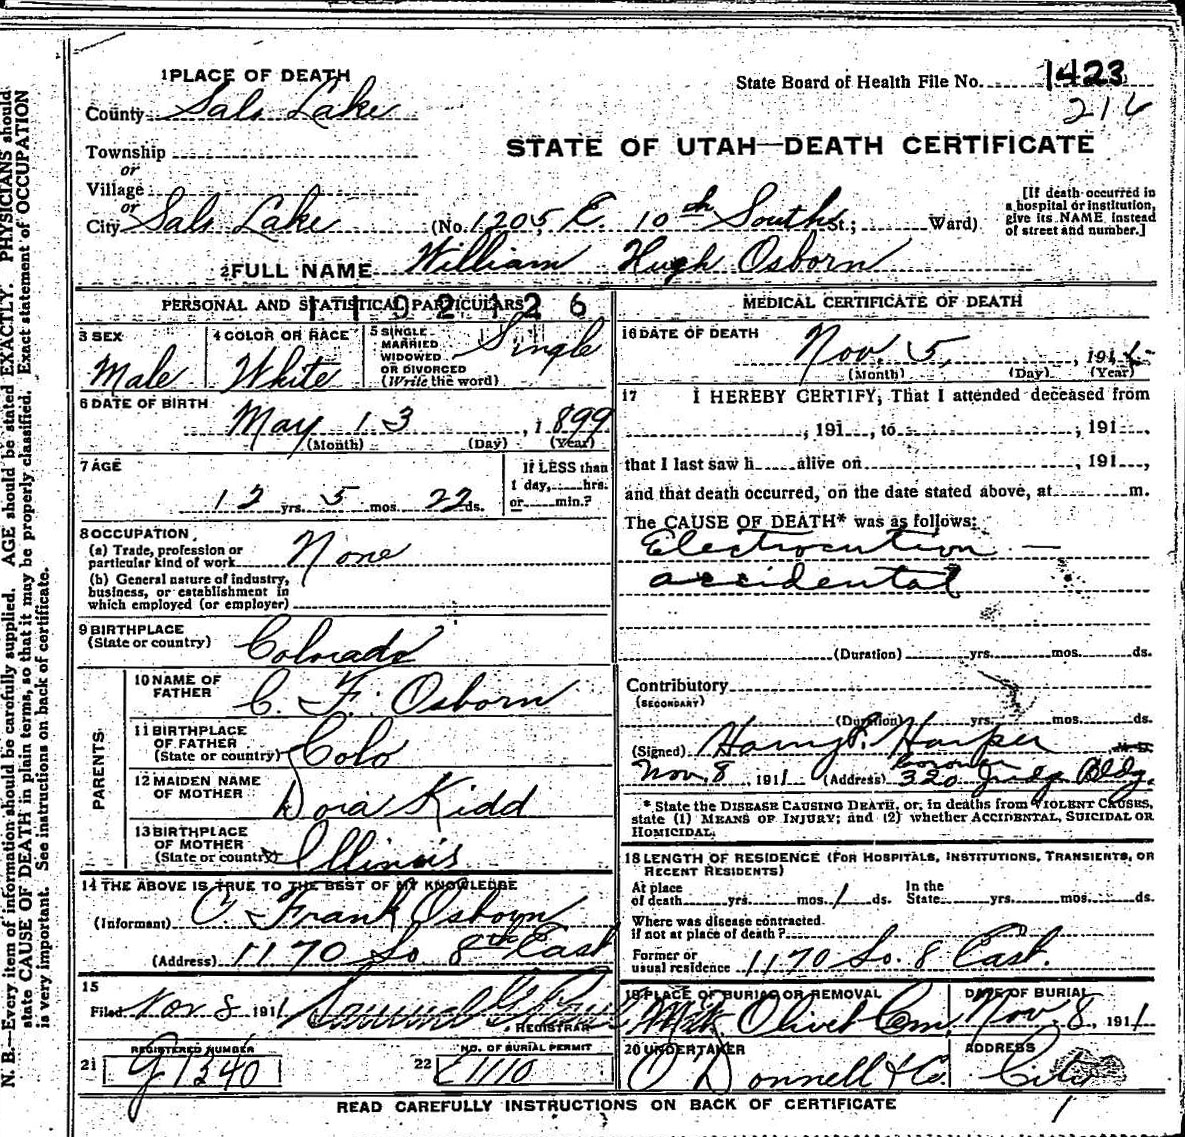 N. B.—Every item of information should be carefully supplied. AGE should be stated EXACTLY. PHYSICIANS should
state CAUSE OF DEATH in plain terms, so that it may be properly classified. Exact statement of OCCUPATION
is very important. See instructions on back of certificate.
1 PLACE OF DEATH
State Board of Health File No. 1423
216
County Salt Lake
STATE OF UTAH—DEATH CERTIFICATE
Township
or
Village
or
City Salt Lake (No. 1205 E. 10th South St.; Ward)
[If death occurred in
a hospital or institution,
give its NAME instead
of street and number.]
2 FULL NAME William Hugh Osborn
PERSONAL AND STATISTICAL PARTICULARS
1192126
3 SEX
Male
4 COLOR OR RACE
White
5 SINGLE
MARRIED
WIDOWED
OR DIVORCED
(Write the word)
Single
6 DATE OF BIRTH
May 13, 1899
(Month) (Day) (Year)
7 AGE
12 yrs. 5 mos. 22 ds.
If LESS than
1 day, hrs.
or min.?
8 OCCUPATION
(a) Trade, profession or
particular kind of work None
(b) General nature of industry,
business, or establishment in
which employed (or employer)
9 BIRTHPLACE
(State or country) Colorado
PARENTS
10 NAME OF
FATHER C. F. Osborn
11 BIRTHPLACE
OF FATHER
(State or country) Colo
12 MAIDEN NAME
OF MOTHER Dora Kidd
13 BIRTHPLACE
OF MOTHER
(State or country) Illinois
14 THE ABOVE IS TRUE TO THE BEST OF MY KNOWLEDGE
(Informant) C Frank Osborn
(Address) 1170 So. 8th East
15
Filed Nov 8 1911 Samuel G
REGISTRAR
21 REGISTERED NUMBER
1340
22 NO. OF BURIAL PERMIT
1110
MEDICAL CERTIFICATE OF DEATH
16 DATE OF DEATH
Nov. 5, 191
(Month) (Day) (Year)
17 I HEREBY CERTIFY, That I attended deceased from
, 191 , to , 191 ,
that I last saw h alive on , 191 ,
and that death occurred, on the date stated above, at m.
The CAUSE OF DEATH* was as follows:
Electrocution —
accidental
(Duration) yrs. mos. ds.
Contributory
(SECONDARY)
(Duration) yrs. mos. ds.
(Signed) Harry P. Harper M. D.
coroner
Nov. 8, 1911 (Address) 320 Judge Bldg.
* State the DISEASE CAUSING DEATH, or, in deaths from VIOLENT CAUSES,
state (1) MEANS OF INJURY; and (2) whether ACCIDENTAL, SUICIDAL OR
HOMICIDAL.
18 LENGTH OF RESIDENCE (FOR HOSPITALS, INSTITUTIONS, TRANSIENTS, OR
RECENT RESIDENTS)
At place
of death yrs. mos. 1 ds.
In the
State yrs. mos. ds.
Where was disease contracted
if not at place of death?
Former or
usual residence 1170 So. 8 East.
19 PLACE OF BURIAL OR REMOVAL
Mt. Olivet Cem
DATE OF BURIAL
Nov. 8, 1911
20 UNDERTAKER
O'Donnell & Co.
ADDRESS
City
READ CAREFULLY INSTRUCTIONS ON BACK OF CERTIFICATE